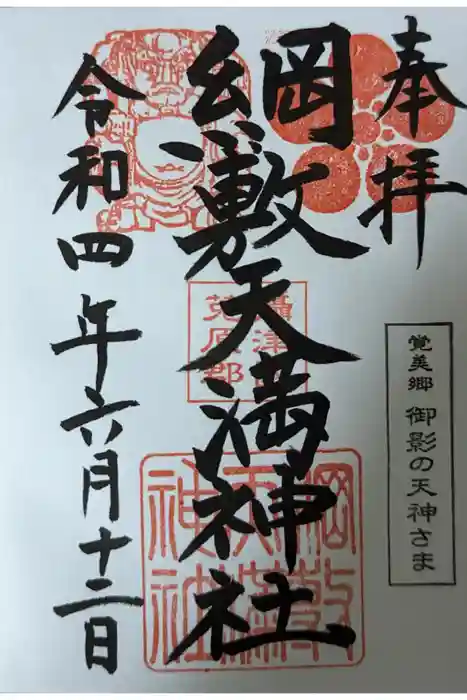 奉拝
綱敷天満神社
令和四年六月十二日
攝津国
菟原郡
綱敷
天満
神社
覚美郷 御影の天神さま